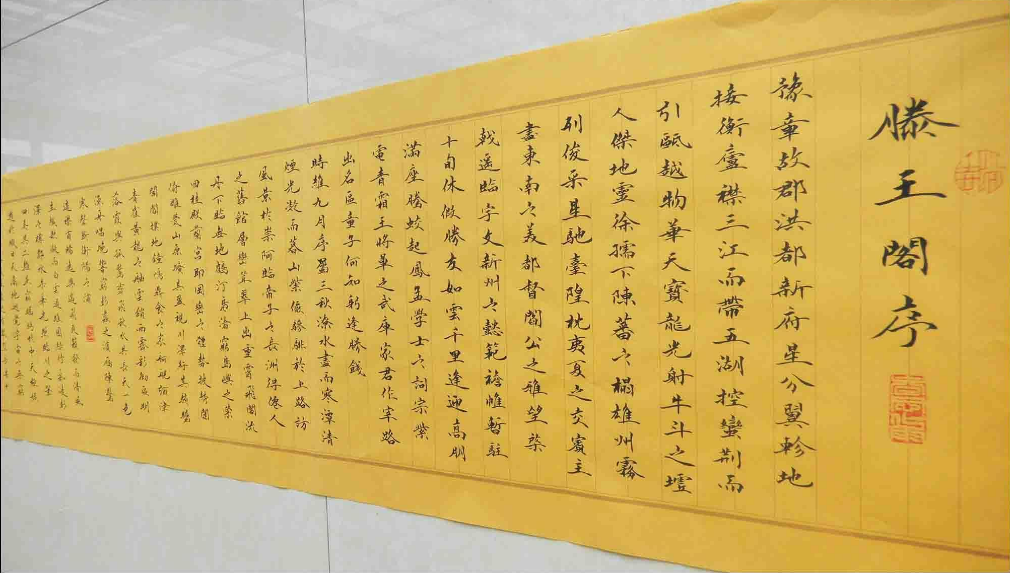 滕王閣序
豫章故郡洪都新府星分翼軫地
接衡廬襟三江而帶五湖控蠻荆而
引甌越物華天寶龍光射牛斗之墟
人傑地靈徐孺下陳蕃之榻雄州霧
列俊采星馳臺隍枕夷夏之交賓主
盡東南之美都督閻公之雅望棨
戟遥臨宇文新州之懿範襜帷暫駐
十旬休假勝友如雲千里逢迎高朋
滿座騰蛟起鳳孟學士之詞宗紫
電青霜王將軍之武庫家君作宰路
出名區童子何知躬逢勝餞
時維九月序屬三秋潦水盡而寒潭清
煙光凝而暮山紫儼驂騑於上路訪
風景於崇阿臨帝子之長洲得僊人
之舊館層巒聳翠上出重霄飛閣流
丹下臨無地鶴汀鳧渚窮島嶼之縈
回桂殿蘭宮即岡巒之體勢披繡闥
俯雕甍山原曠其盈視川澤紆其駭矚
閭閻撲地鐘鳴鼎食之家舸艦彌津
青雀黄龍之舳雲銷雨霽彩徹區明
落霞與孤鶩齊飛秋水共長天一色
漁舟唱晚響窮彭蠡之濱雁陣驚
寒聲斷衡陽之浦